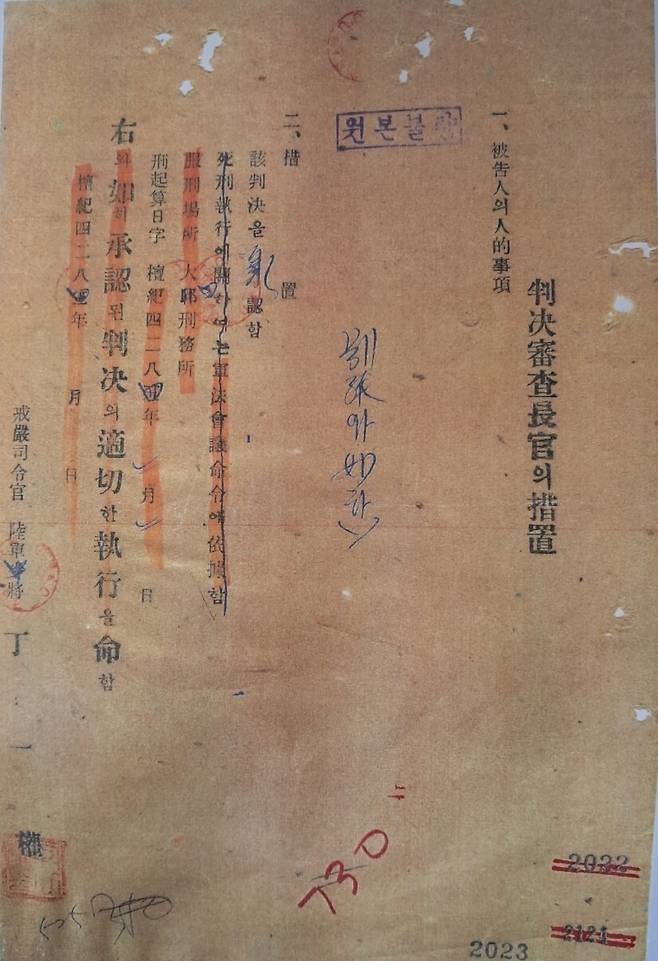 判决審査長官의措置
一、被告人의人的事項
원본불량
別紙와如함
二、措置
該判決을承認함
死刑執行에關하여는軍法會議命令에依據함
服刑場所 大邱刑務所
刑起算日字 檀紀四二八四年 月 日
右와如히承認된判决의適切한執行을命함
檀紀四二八四年 月 日
戒嚴司令官 陸軍 將 丁一權
730
2022
2121
2023